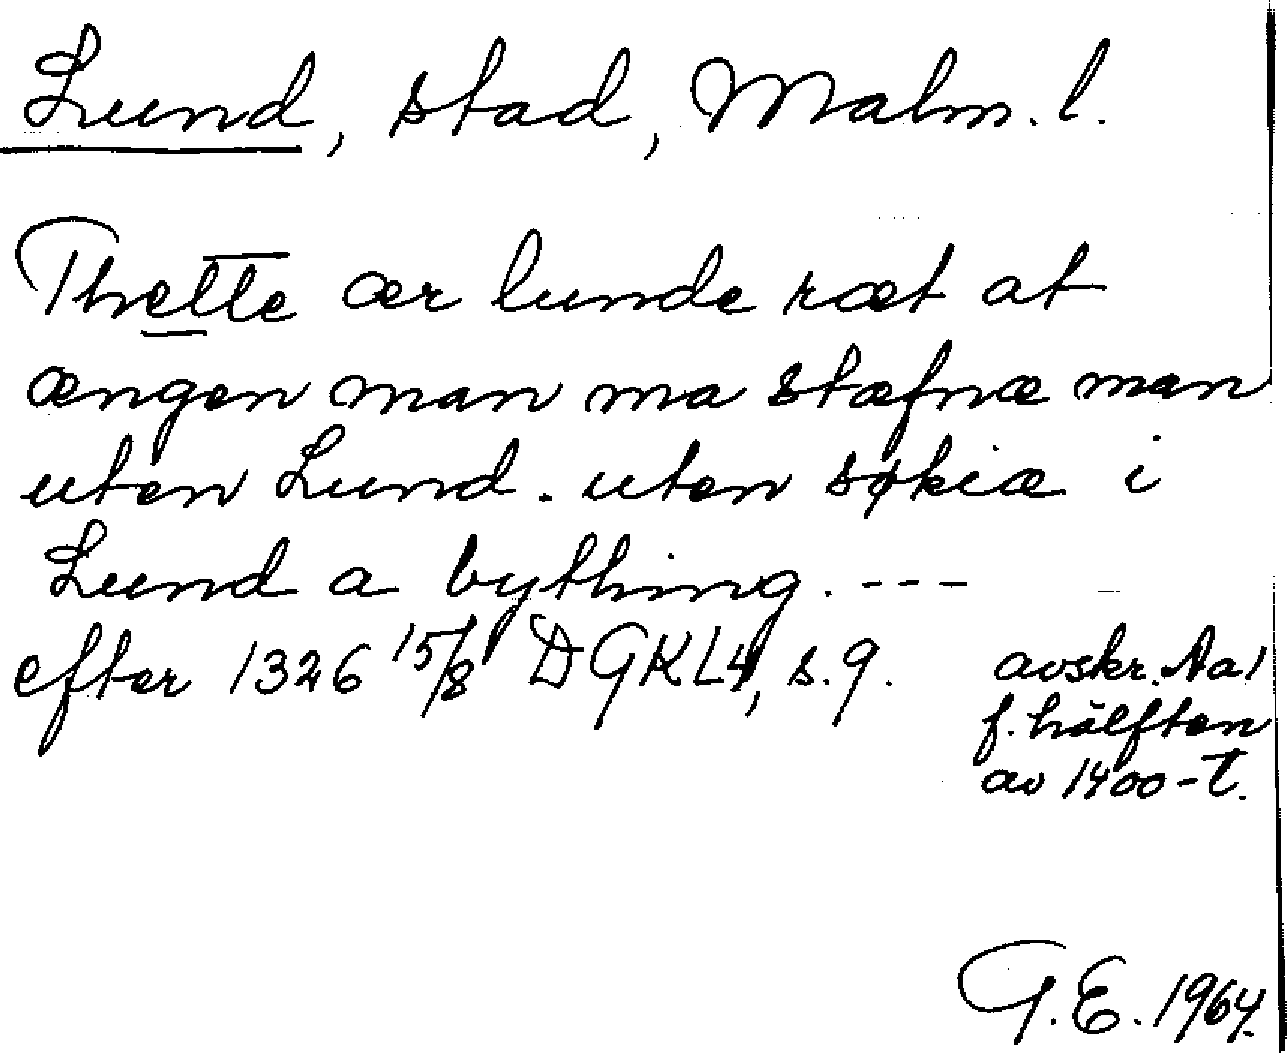 Lund, stad, Malm. l.
Thette ær lunde ræt at
ængen man ma stæfnæ man
uten Lund. uten søkiæ i
Lund a bything. ---
efter 1326 15/8 DGKL4, s. 9. avskr. Aa1
f. hälften
av 1400-t.
G.E. 1964.